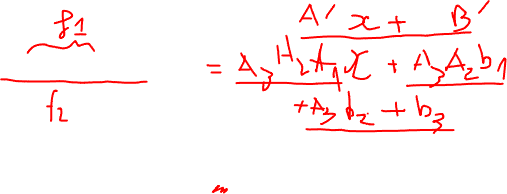 f1
f2
A' x + B'
= A3 A2 A1 x + A3 A2 b1
+ A3 b2 + b3